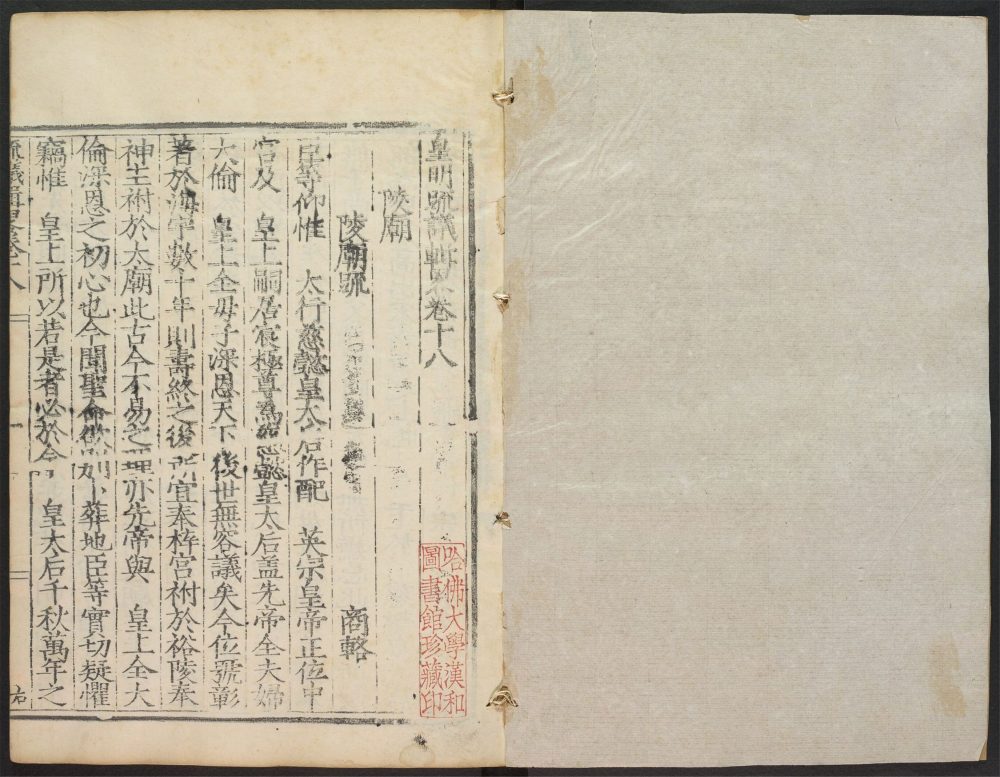 皇明疏議輯畧卷十八
陵廟
陵廟疏 商輅
臣等仰惟 大行慈懿皇太后作配 英宗皇帝正位中
宮及 皇上嗣居宸極尊為慈懿皇太后盖先帝全夫婦
大倫 皇上全母子深恩天下後世無容議矣今位號彰
著於海宇數十年則壽終之後所宜奉梓宮祔於裕陵奉
神主祔於太廟此古今不易之理亦先帝與 皇上全大
倫深恩之初心也今聞聖命欲別卜葬地臣等實切疑懼
竊惟 皇上所以若是者必於今 皇太后千秋萬年之
疏議輯畧卷十八
哈佛大學漢和
圖書館珍藏印